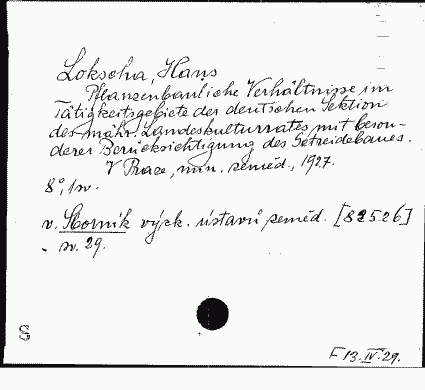 Lokscha, Hans
Pflanzenbauliche Verhältnisse im
Tätigkeitsgebiete der deutschen Sektion
des mähr. Landeskulturrates mit beson-
derer Berücksichtigung des Getreidebaues.
V Praze, min. zeměd., 1927.
8°, 1 sv.
v. Sborník výzk. ústavů zeměd. [82526]
- sv. 29.
S
F 13. IV. 29.